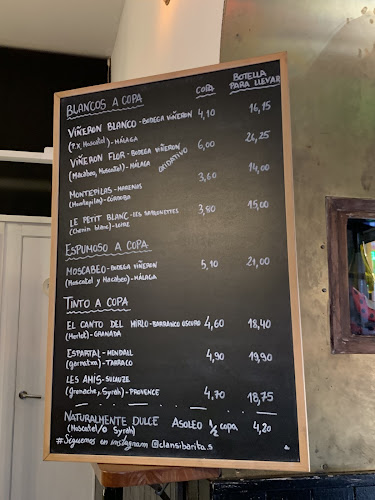 BLANCOS A COPA COPA BOTELLA PARA LLEVAR
VIÑERON BLANCO - BODEGA VIÑERON 4,10 16,15
(P.X, Moscatel) - MÁLAGA
VIÑERON FLOR - BODEGA VIÑERON 6,00 26,25
(Macabeo, Moscatel) - MÁLAGA OXIDATIVO
MONTEPILAS - MARENAS 3,60 14,00
(Montepila) - CÓRDOBA
LE PETIT BLANC - LES SABLONETTES 3,80 15,00
(Chenin blanc) - LOIRE
ESPUMOSO A COPA
MOSCABEO - BODEGA VIÑERON 5,10 21,00
(Moscatel y Macabeo) - MÁLAGA
TINTO A COPA
EL CANTO DEL MIRLO - BARRANCO OSCURO 4,60 18,40
(Merlot) - GRANADA
ESPARTAL - MENDALL 4,90 19,90
(garnatxa) - TARRACO
LES AMIS - SULAUZE 4,70 18,75
(Grenache, Syrah) - PROVENCE
NATURALMENTE DULCE ASOLEO 1/2 copa 4,20
(Moscatel/o Syrah)
#Síguenos en instagram @clansibarita.s